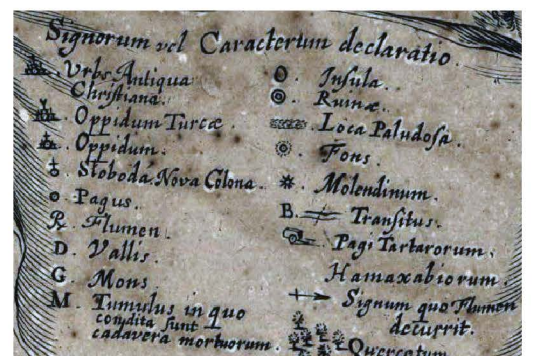 Signorum vel Caracterum declaratio.
Vrbs Antiqua
Christiana.
Oppidum Turcæ.
Oppidum.
Sloboda, Nova Colona.
Pagus.
R. Flumen.
D. Vallis.
G. Mons.
M. Tumulus in quo
condita sunt
cadavera mortuorum.
Insula.
Ruinæ.
Loca Paludosa.
Fons.
Molendinum.
B. Transitus.
Pagi Tartarorum.
Hamaxabiorum.
Signum quo Flumen
decurrit.
Quercetum